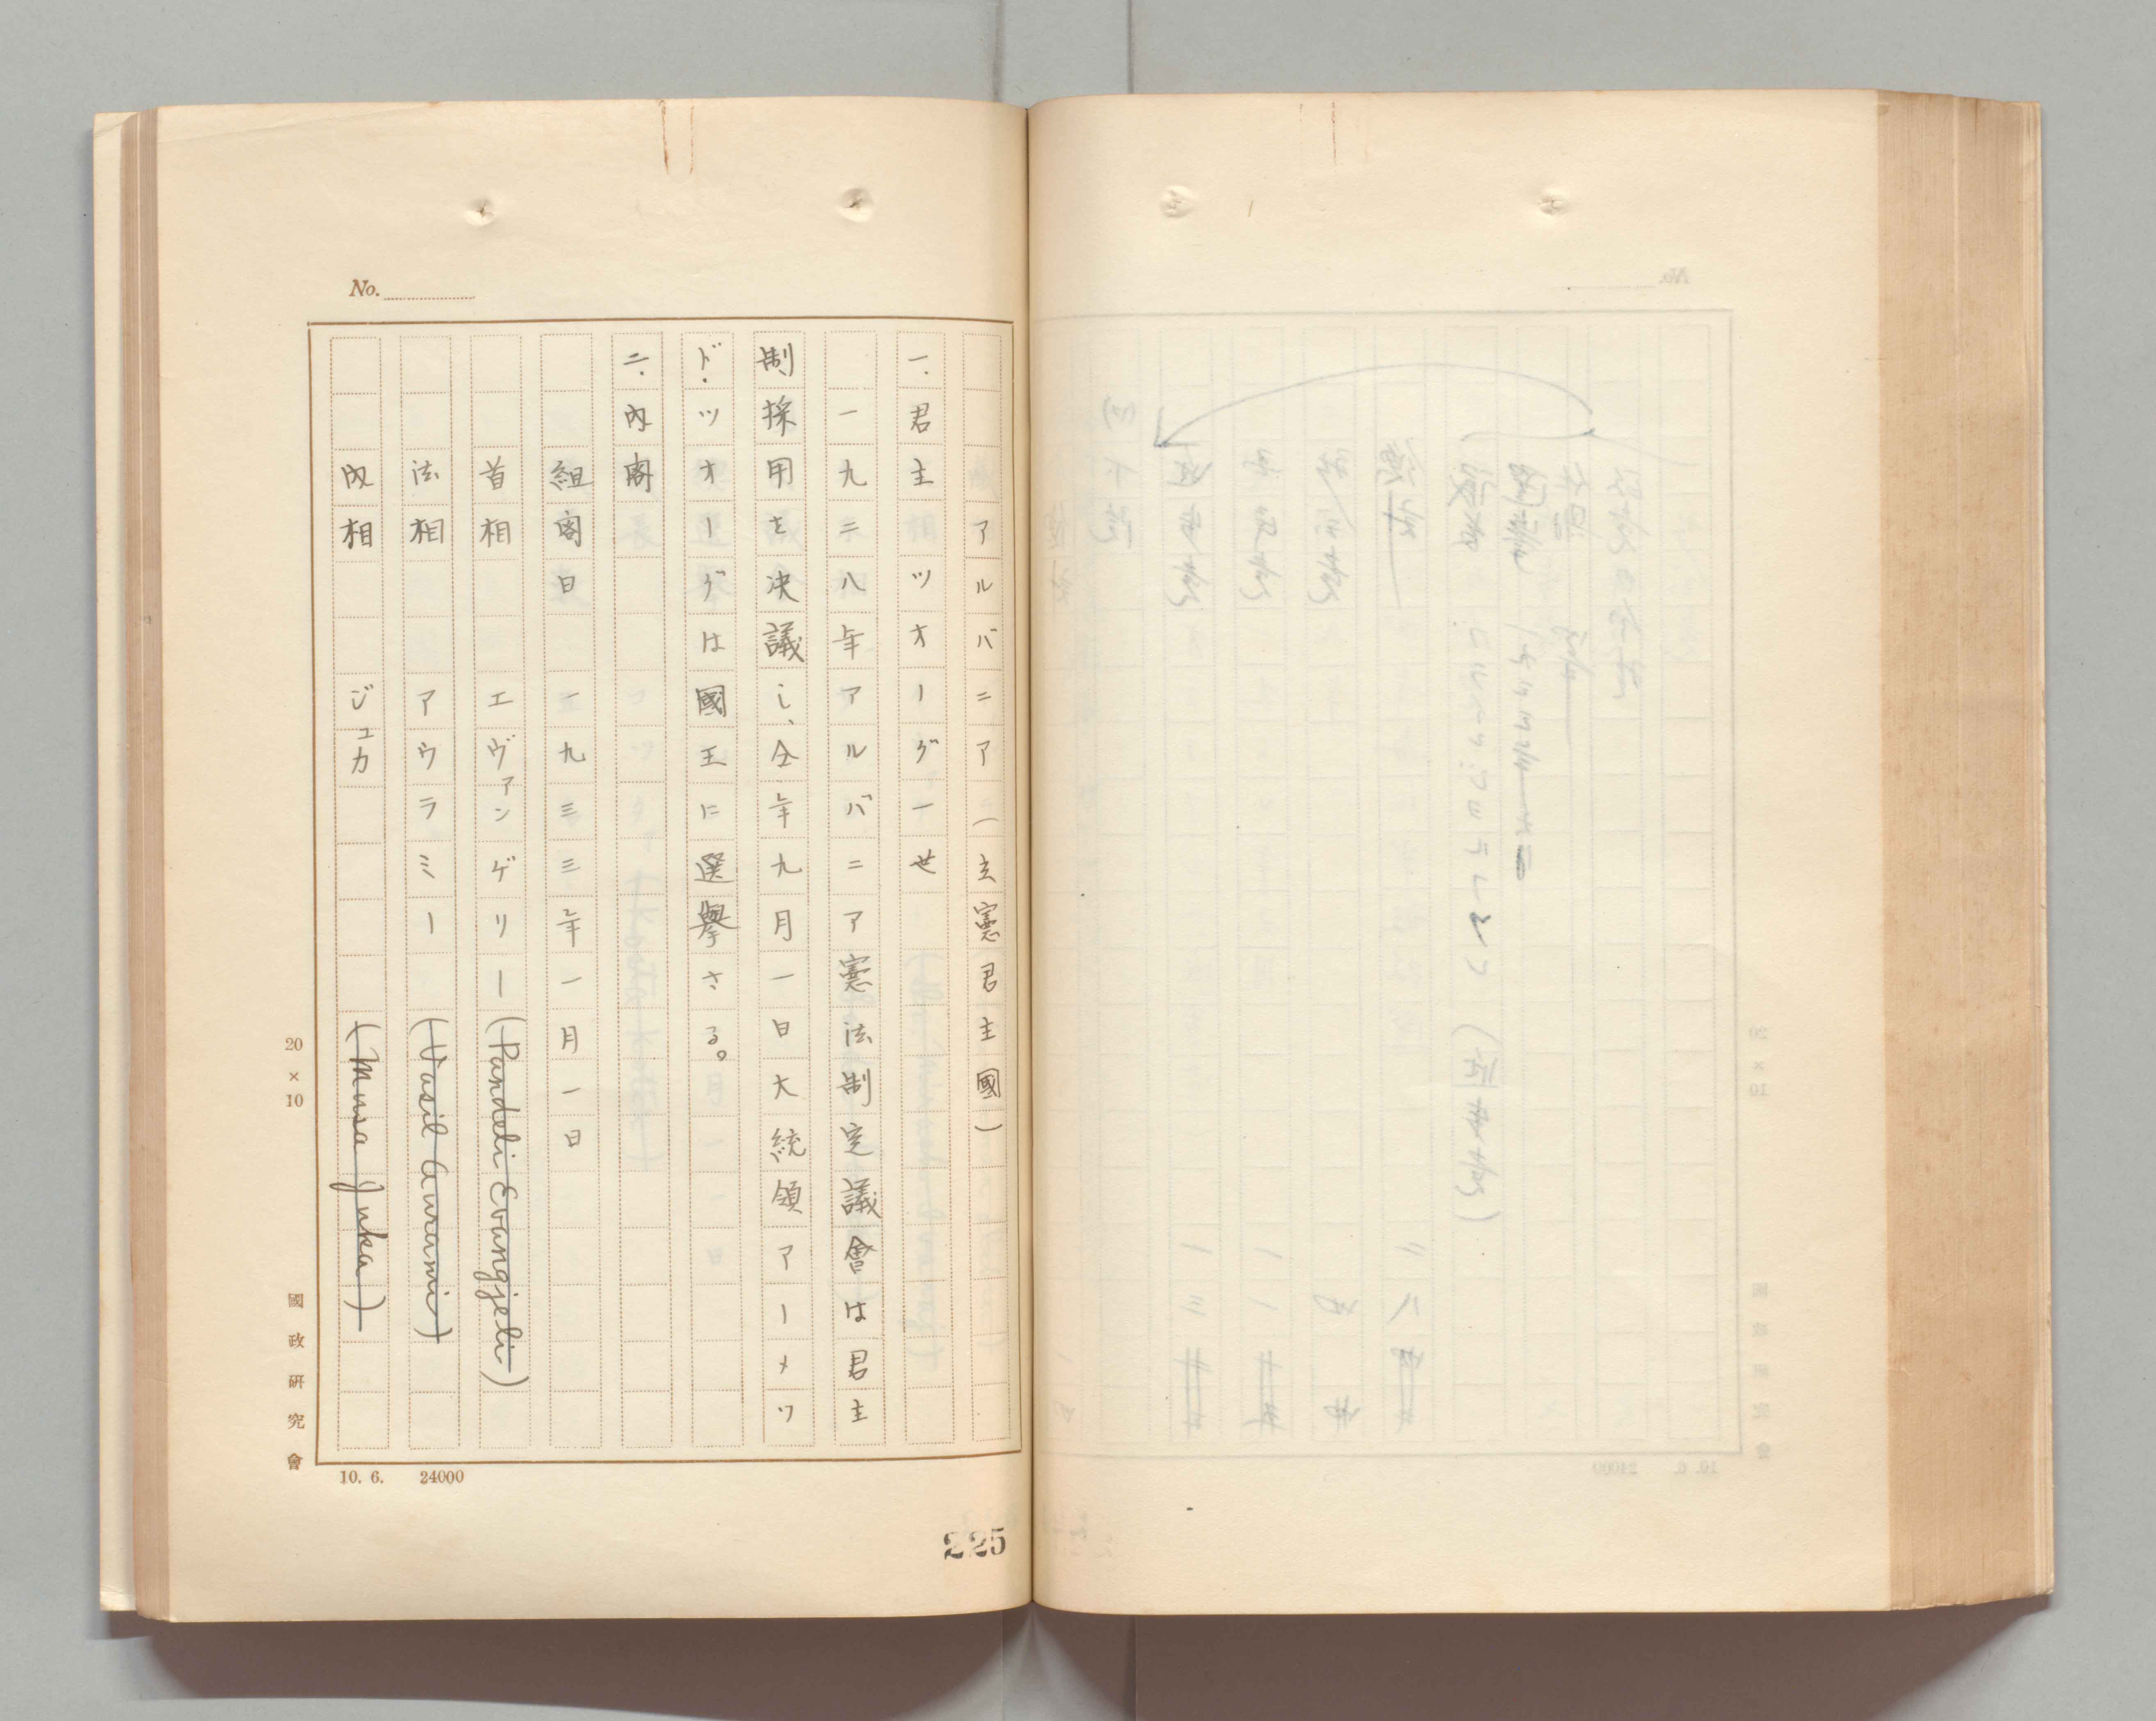 No.
アルバニア（立憲君主國）
一．君主 ツオーグ一世
一九二八年アルバニア憲法制定議會は君主
制採用を決議し、仝年九月一日大統領アーメツ
ド・ツオーグは國王に選擧さる。
二．內閣
組閣日 一九三三年一月一日
首相 エヴァンゲリー（Pandeli Evangjeli）
法相 アウラミー（Vasil Avrami）
內相 ジュカ（Musa Juka）
20×10
國政硏究會
10. 6. 24000
225